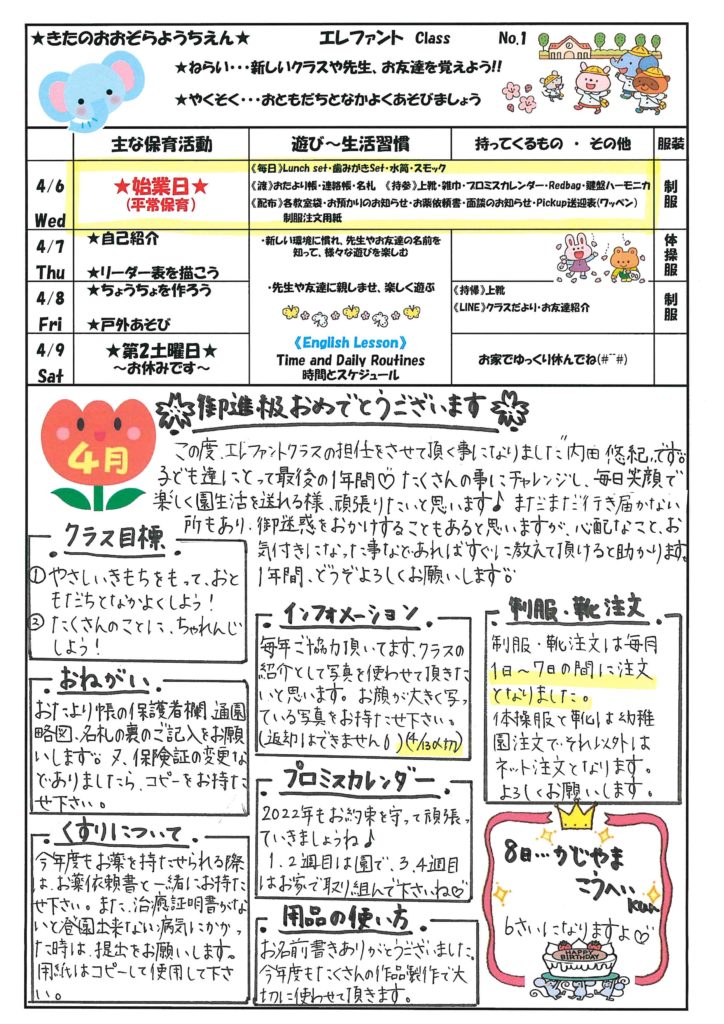 ★きたのおおぞらようちえん★ エレファント Class No.1
★ねらい・・・新しいクラスや先生、お友達を覚えよう!!
★やくそく・・・おともだちとなかよくあそびましょう
主な保育活動 遊び～生活習慣 持ってくるもの ・ その他 服装
4/6 Wed
★始業日★
(平常保育)
《毎日》Lunch set・歯みがきSet・水筒・スモック
《渡》おたより帳・連絡帳・名札 《持参》上靴・雑巾・プロミスカレンダー・Redbag・鍵盤ハーモニカ
《配布》各教室袋・お預かりのお知らせ・お薬依頼書・面談のお知らせ・Pickup送迎表(ワッペン)
制服注文用紙
制服
4/7 Thu
★自己紹介
★リーダー表を描こう
・新しい環境に慣れ、先生やお友達の名前を
知って、様々な遊びを楽しむ
体操服
4/8 Fri
★ちょうちょを作ろう
★戸外あそび
・先生や友達に親しませ、楽しく遊ぶ
《持帰》上靴
《LINE》クラスだより・お友達紹介
制服
4/9 Sat
★第2土曜日★
～お休みです～
《English Lesson》
Time and Daily Routines
時間とスケジュール
お家でゆっくり休んでね(#^^#)
4月
御進級おめでとうございます
この度、エレファントクラスの担任をさせて頂く事になりました"内田 悠紀"です。
子ども達にとって最後の1年間♡たくさんの事にチャレンジし、毎日笑顔で
楽しく園生活を送れる様、頑張りたいと思います♪まだまだ行き届かない
所もあり、御迷惑をおかけすることもあると思いますが、心配なこと、お
気付きになった事などあればすぐに教えて頂けると助かります。
1年間、どうぞよろしくお願いします。
クラス目標
① やさしいきもちをもって、おと
もだちとなかよくしよう!
② たくさんのことに、ちゃれんじ
しよう!
おねがい
おたより帳の保護者欄、通園
略図、名札の裏のご記入をお願
いします。又、保険証の変更な
どありましたら、コピーをお持た
せ下さい。
くすりについて
今年度もお薬を持たせられる際
は、お薬依頼書と一緒にお持た
せ下さい。また、治癒証明書がな
いと登園出来ない病気にかかっ
た時は、提出をお願いします。
用紙はコピーして使用して下さ
い。
インフォメーション
毎年ご協力頂いてます、クラスの
紹介として写真を使わせて頂きた
いと思います。お顔が大きく写っ
ている写真をお持たせ下さい。
(返却はできません)(4/13〆切)
プロミスカレンダー
2022年もお約束を守って頑張っ
ていきましょうね♪
1.2週目は園で、3.4週目
はお家で取り組んで下さいね♡
用品の使い方
お名前書きありがとうございました。
今年度もたくさんの作品製作で大
切に使わせて頂きます。
制服・靴注文
制服・靴注文は毎月
1日～7日の間に注文
となりました。
体操服と靴は幼稚
園注文で、それ以外は
ネット注文となります。
よろしくお願いします。
8日…かじやま
こうへい
kun
6さいになりますよ♡
HAPPY
BIRTHDAY